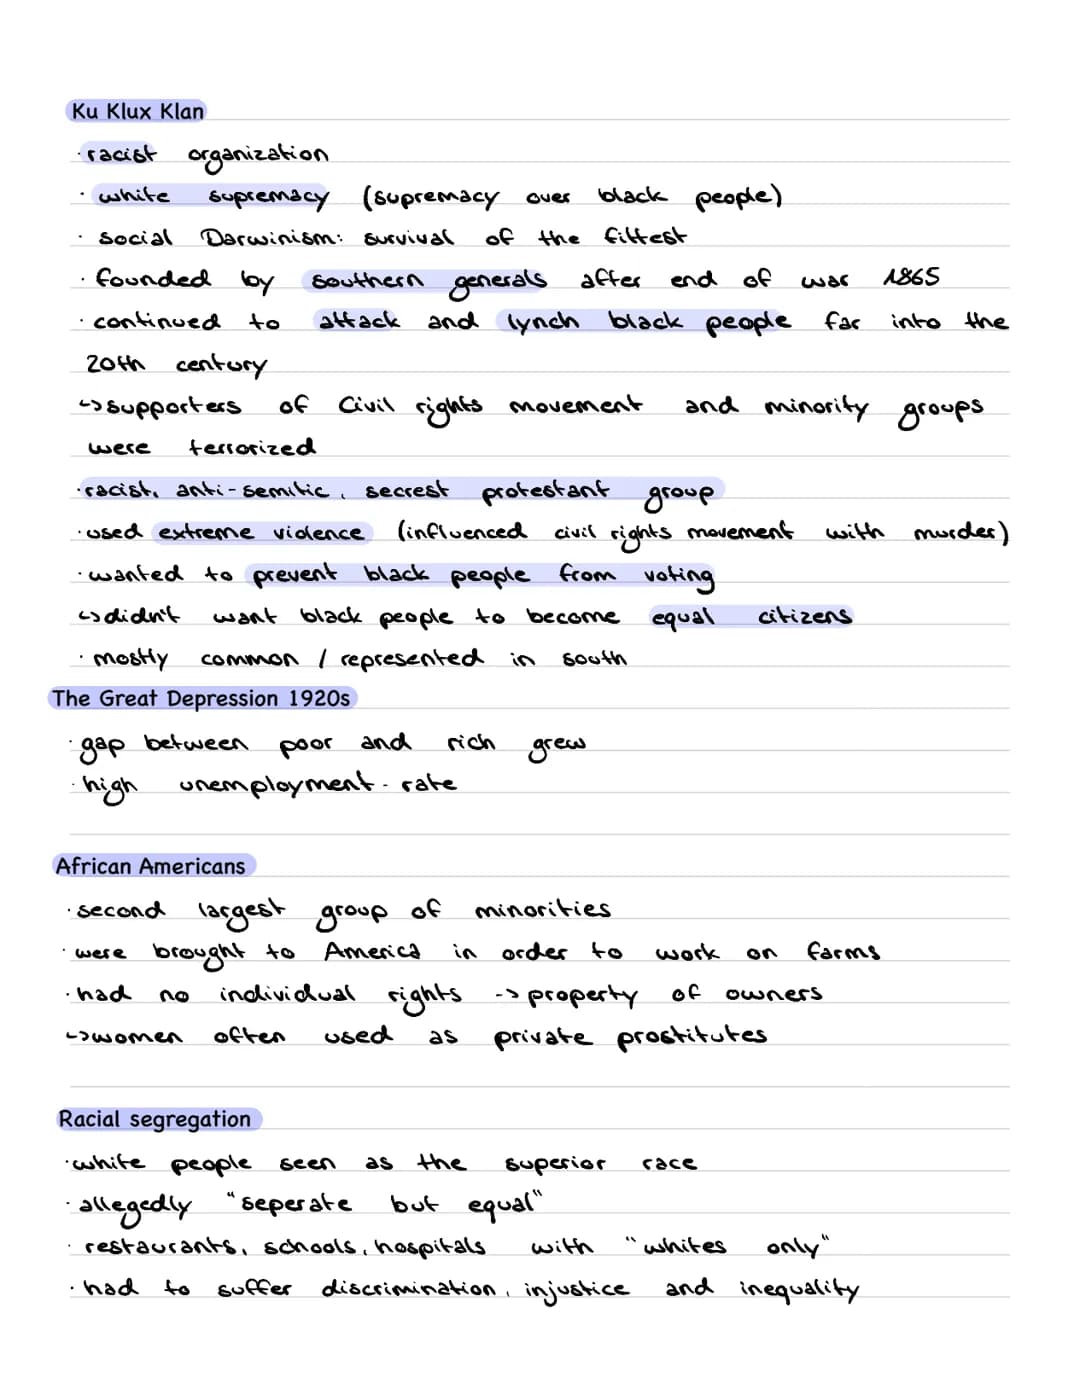 Ku Klux Klan
· racist organization
· white supremacy (supremacy over black people)
· social Darwinism: survival of the fittest
· founded by southern generals after end of war 1865
· continued to attack and lynch black people far into the
20th century
↳ supporters of Civil rights movement and minority groups
were terrorized
· racist, anti-semitic, secrest protestant group
· used extreme violence (influenced civil rights movement with murder)
· wanted to prevent black people from voting
↳ didn't want black people to become equal citizens
· mostly common / represented in south
The Great Depression 1920s
· gap between poor and rich grew
· high unemployment-rate
African Americans
· second largest group of minorities
· were brought to America in order to work on farms
· had no individual rights -> property of owners
↳ women often used as private prostitutes
Racial segregation
· white people seen as the superior race
· allegedly "seperate but equal"
· restaurants, schools, hospitals with "whites only"
· had to suffer discrimination, injustice and inequality